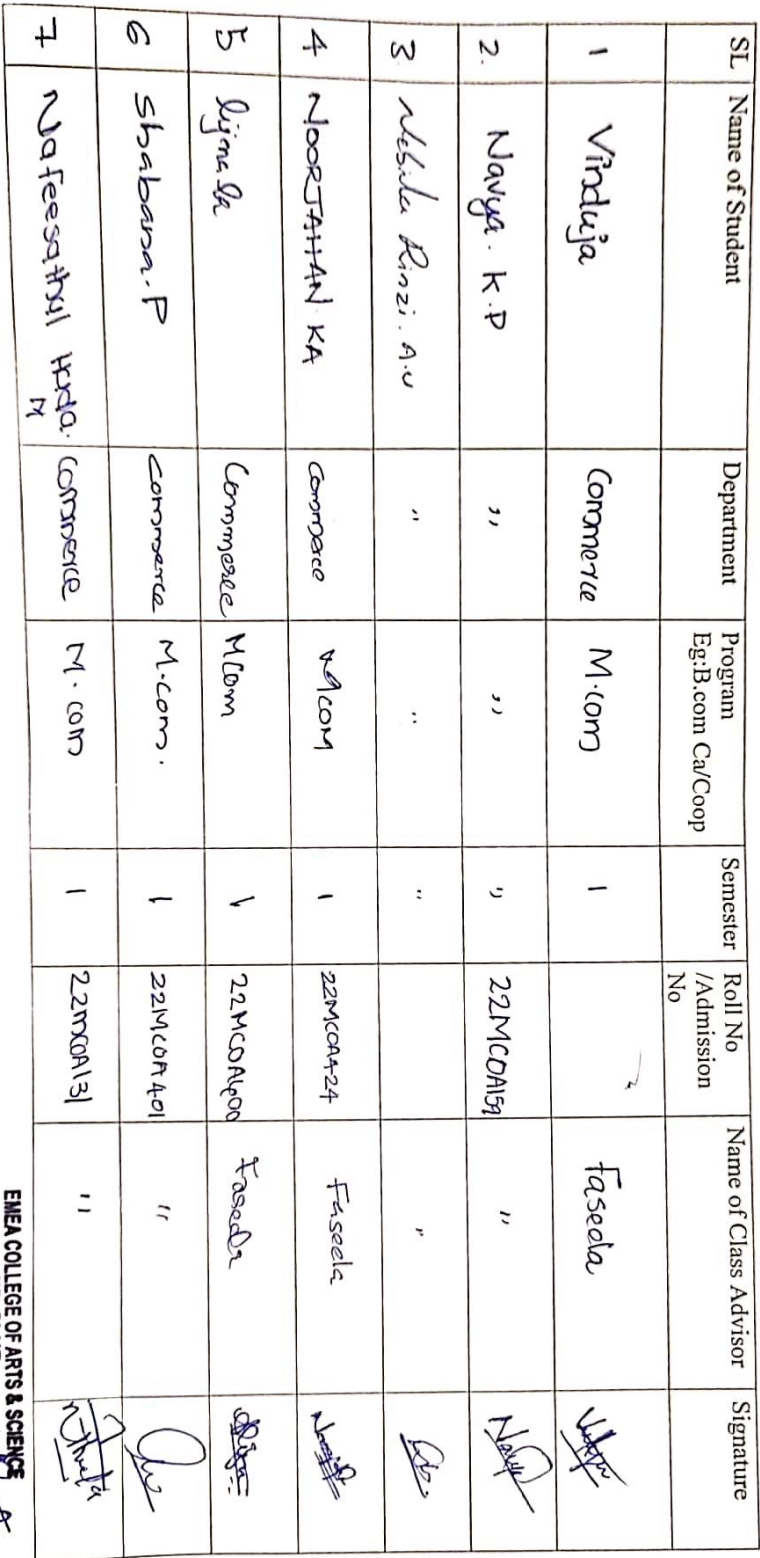 SL Name of Student Department Program Eg:B.com Ca/Coop Semester Roll No /Admission No Name of Class Advisor Signature
1 Vinduja Commerce M.com 1 Faseela
2. Navya. K.P " " " 22MCOA159 " Navya
3. Rinzi. A.U " " " "
4 NOORJAHAN. KA Commerce MCOM 1 22MCOA424 Faseela
5 Commerce MCom 1 22MCOA400 Faseela
6 Shabana. P Commerce M.com. 1 22MCOA401 "
7 Nafeesathul Huda. M Commerce M.com 1 22MCOA131 "
EMEA COLLEGE OF ARTS & SCIENCE